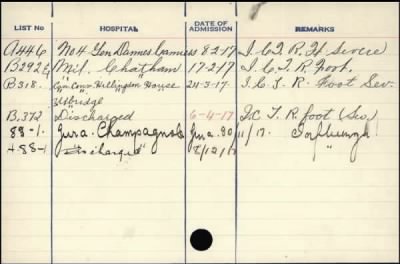 LIST No HOSPITAL DATE OF ADMISSION REMARKS
A446 No 4 Gen Dannes Camiers 8 2 17 I.C.T. R. H Severe
B292 Mil. Chatham 17-2-17 I.C.T. R Foot.
B318 Can Conv Hillingdon House 24-3-17 I.C.T. R Foot Sev.
Uxbridge
B.372 Discharged 6-4-17 I.C.T. R foot (Sev)
88-1 Jura. Champagnole 30/11/17.
488-1 "Discharged" 2/12/17 "